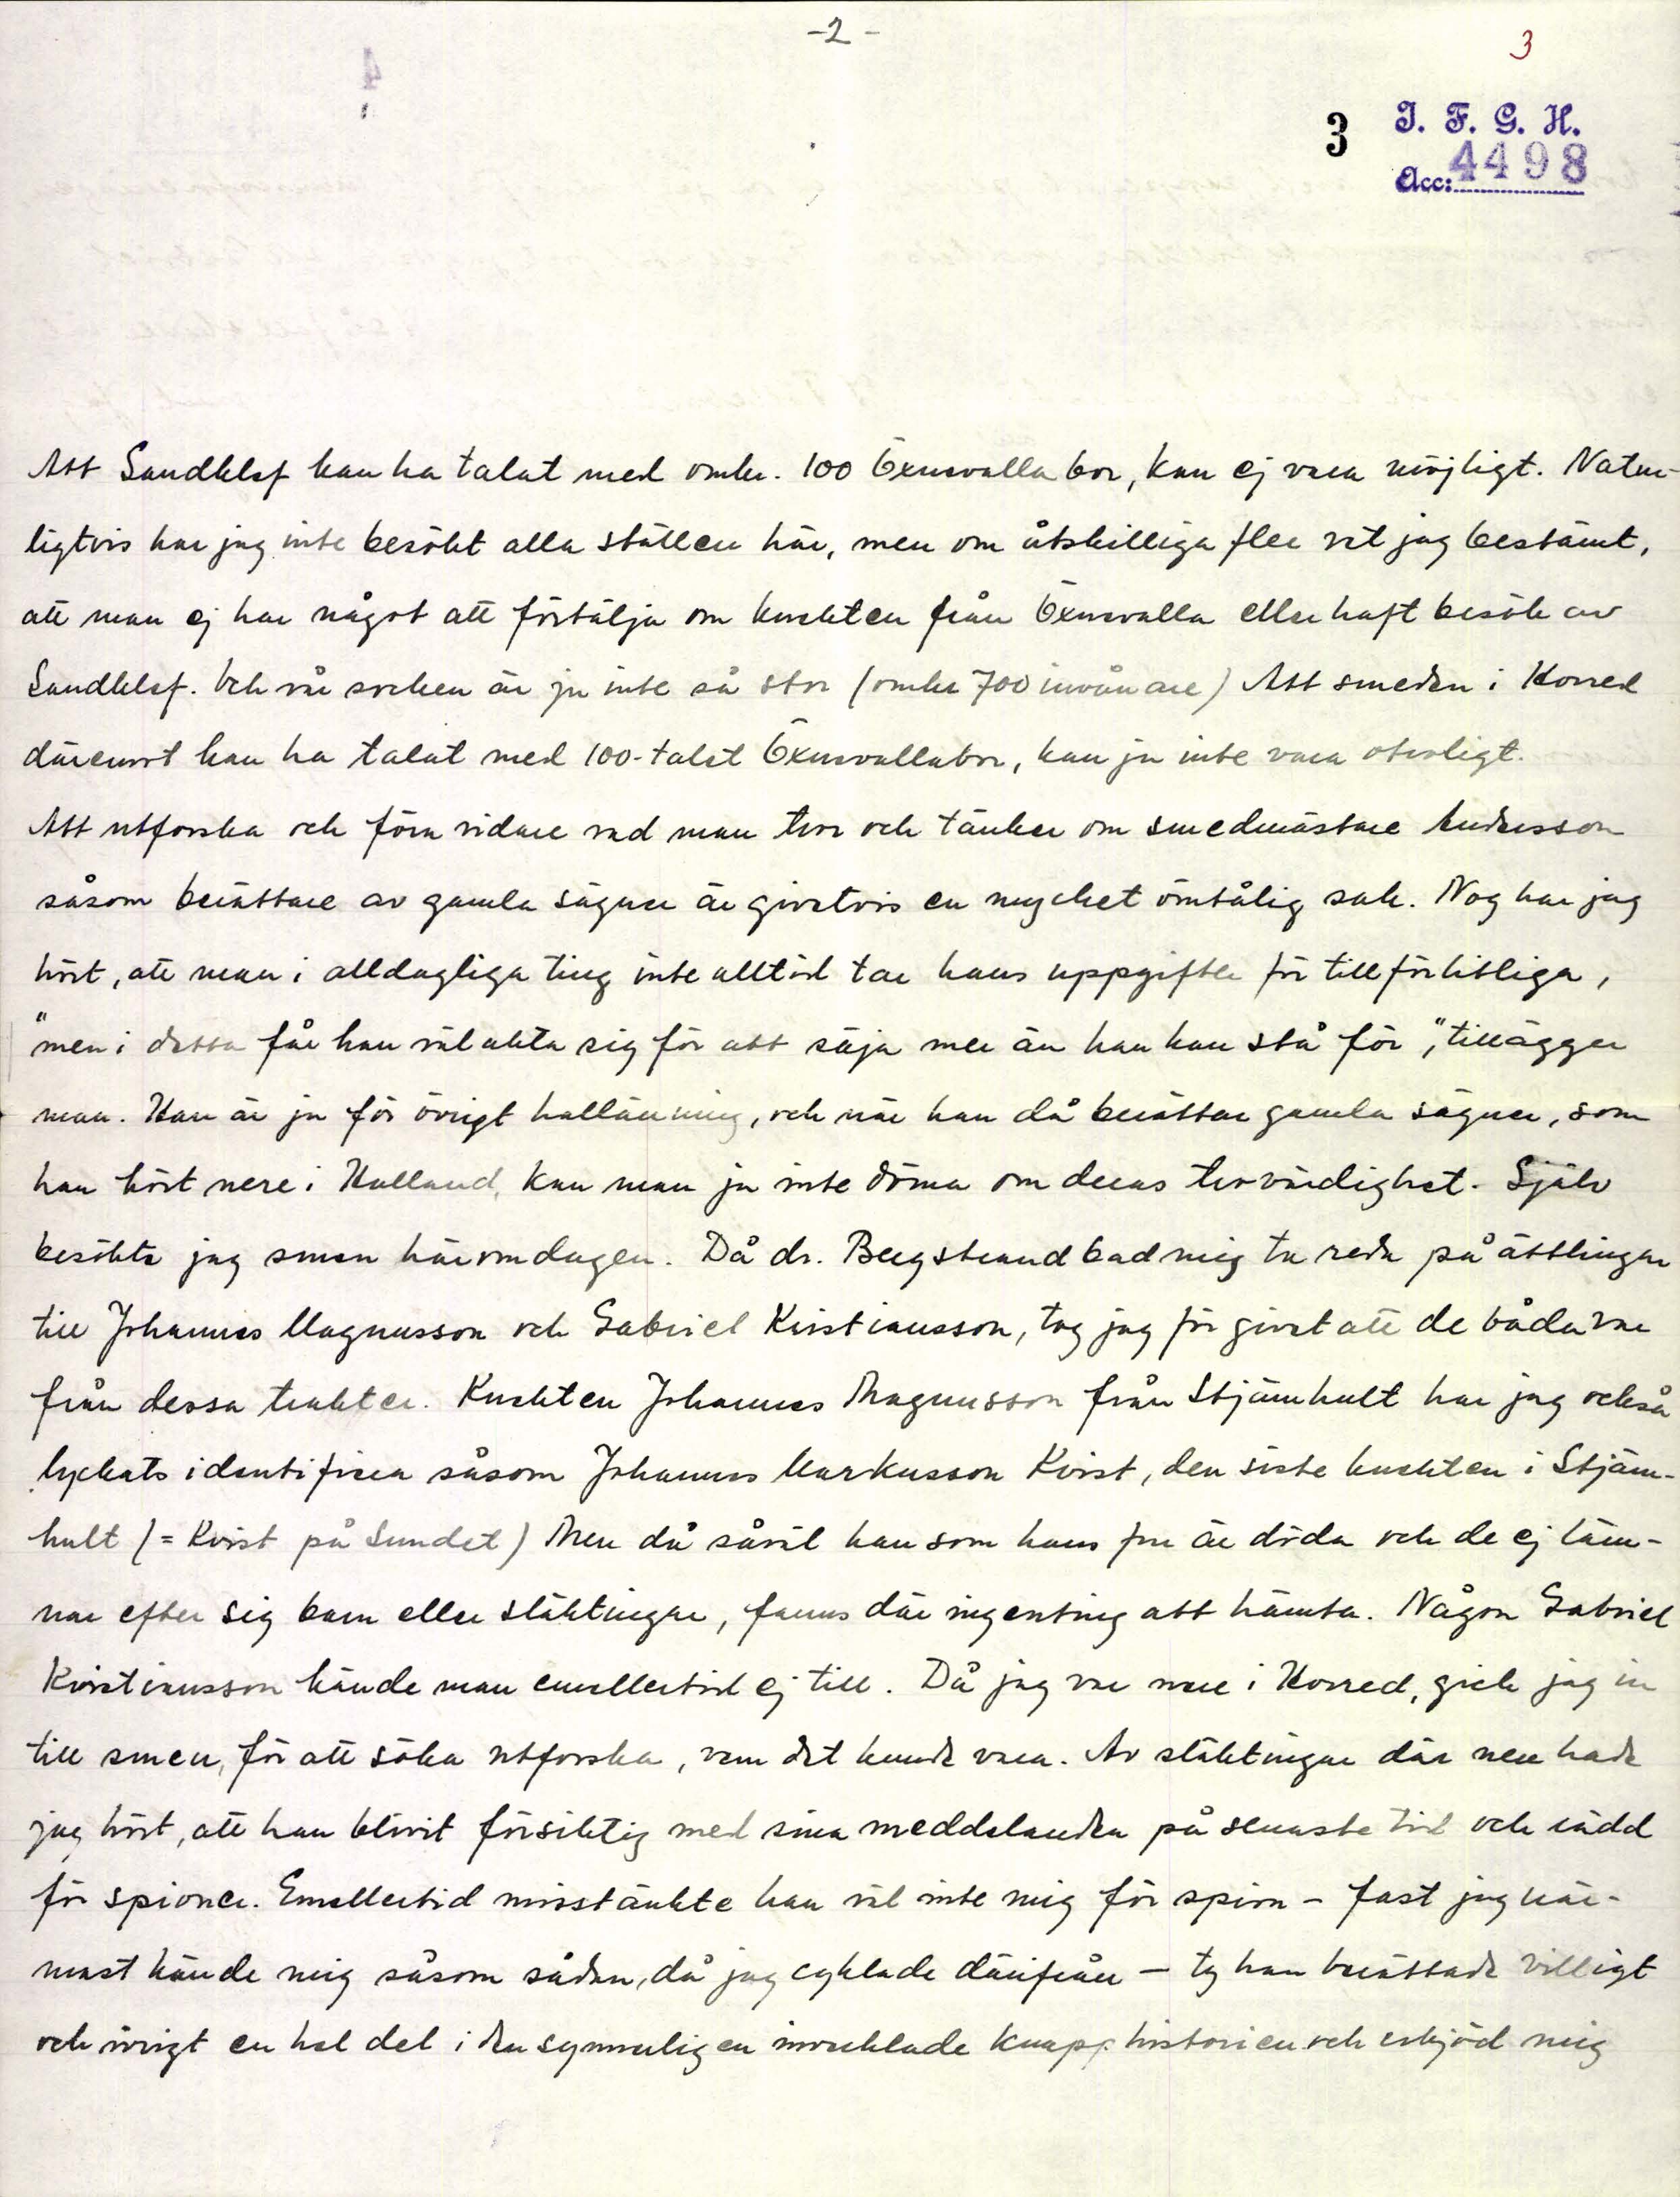 -2-
3
3 I. F. G. H.
Acc: 4498
Att Sandklef kan ha talat med omkr. 100 Öxnevallabor, kan ej vara möjligt. Natur-
ligtvis har jag inte besökt alla ställen här, men om åtskilliga fler vet jag bestämt,
att man ej har något att förtälja om knekten från Öxnevalla eller haft besök av
Sandklef. Och vår socken är ju inte så stor (omkr 700 invånare) Att smeden i Horred
däremot kan ha talat med 100-talet Öxnevallabor, kan ju inte vara otroligt.
Att utforska och föra vidare vad man tror och tänker om smedmästare Andersson
såsom berättare av gamla sägner är givetvis en mycket ömtålig sak. Nog har jag
hört, att man i alldagliga ting inte alltid tar hans uppgifter för tillförlitliga,
"men i detta får han väl akta sig för att säja mer än han kan stå för", tillägger
man. Han är ju för övrigt hallänning, och när han då berättar gamla sägner, som
han hört nere i Halland, kan man ju inte döma om deras trovärdighet. Själv
besökte jag smen häromdagen. Då dr. Bergstrand bad mig ta reda på ättlingar
till Johannes Magnusson och Gabriel Kristiansson, tog jag för givet att de båda var
från dessa trakter. Knekten Johannes Magnusson från Stjärnhult har jag också
lyckats identifiera såsom Johannes Markusson Kvist, den siste knekten i Stjärn-
hult (= Kvist på Sundet) Men då såväl han som hans fru är döda och de ej läm-
nar efter sig barn eller släktingar, fanns där ingenting att hämta. Någon Gabriel
Kristiansson kände man emellertid ej till. Då jag var nere i Horred, gick jag in
till smen, för att söka utforska, vem det kunde vara. Av släktingar där nere hade
jag hört, att han blivit försiktig med sina meddelanden på senaste tid och rädd
för spioner. Emellertid misstänkte han väl inte mig för spion - fast jag när-
mast kände mig såsom sådan, då jag cyklade därifrån - ty han berättade villigt
och ivrigt en hel del i den synnerligen invecklade knapphistorien och erbjöd mig